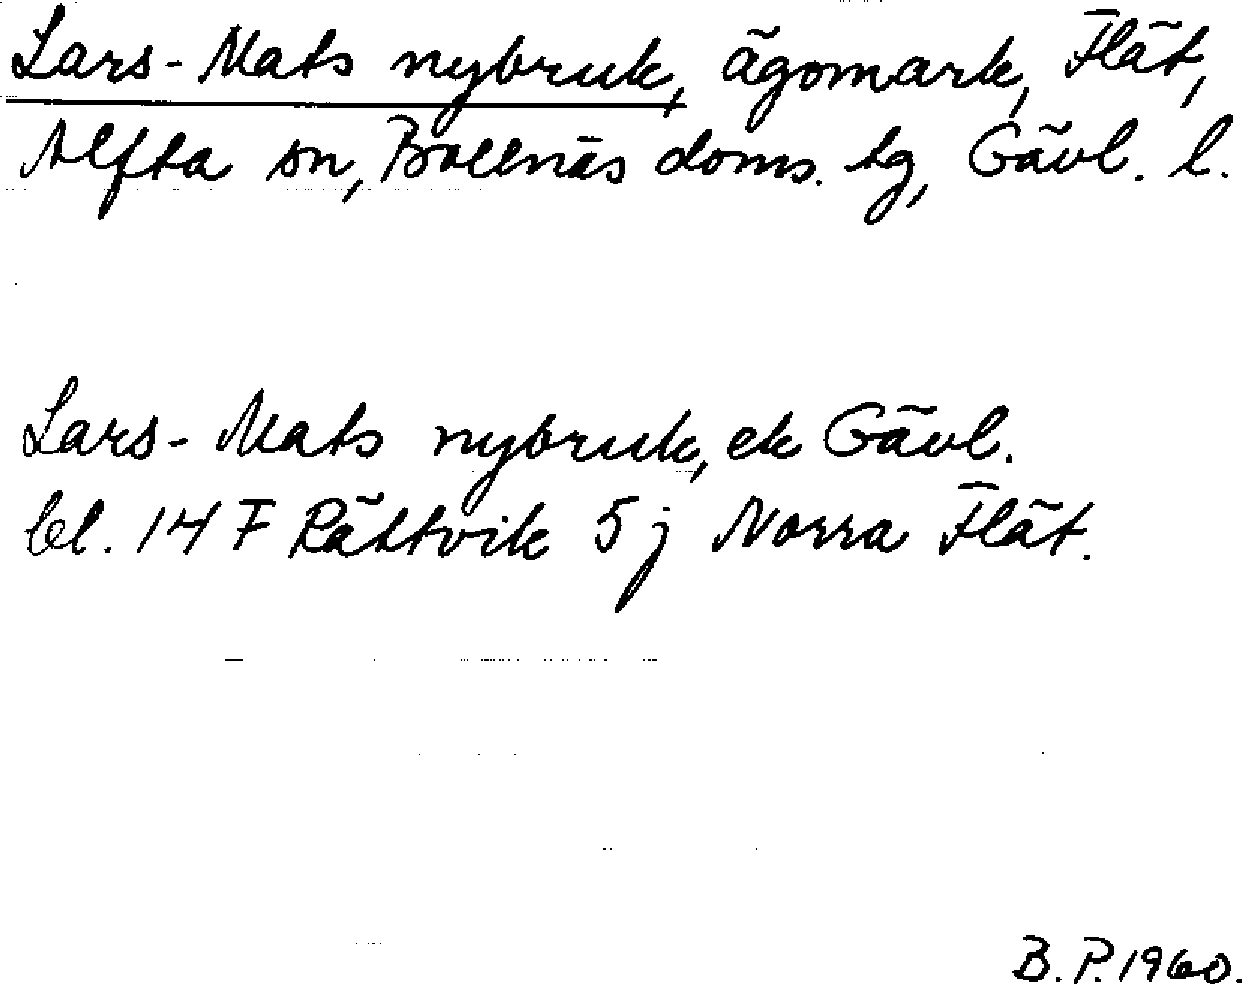 Lars-Mats nybruk, ägomark, Flät,
Alfta sn, Bollnäs doms. tg, Gävl. l.
Lars-Mats nybruk, ek Gävl.
bl. 14 F Rättvik 5 j Norra Flät.
B. P. 1960.